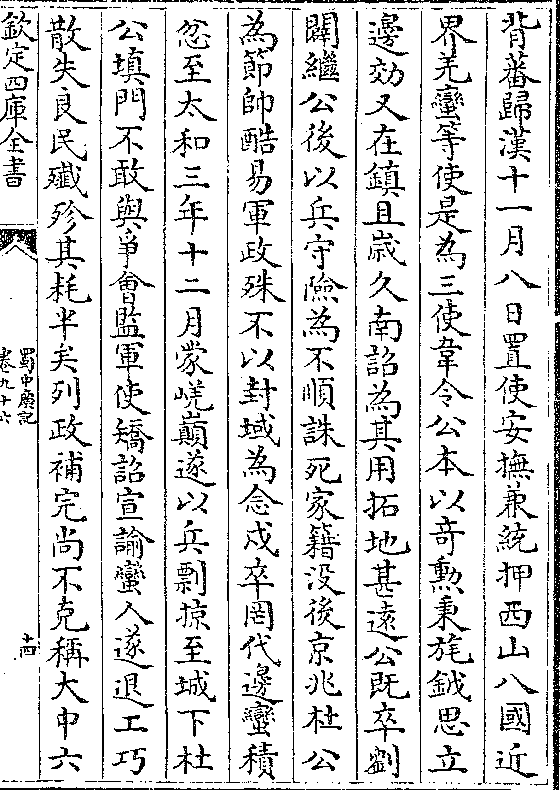 背蕃歸漢十一月八日置使安撫兼統押西山八國近
界羌蠻等使是為三使韋令公本以竒勲秉旄鉞思立
邊効又在鎮且嵗久南詔為其用拓地甚逺公既卒劉
闢繼公後以兵守險為不順誅死家籍没後京兆杜公
為節帥酷易軍政殊不以封域為念戍卒罔代邊蠻積
忿至太和三年十二月䝉嵯巔遂以兵剽掠至城下杜
公填門不敢與爭㑹監軍使矯詔宣諭蠻人遂退工巧
散失良民殱殄其耗半矣列政補完尚不克稱大中六
欽定四庫全書
蜀中廣記
卷九十六
十四